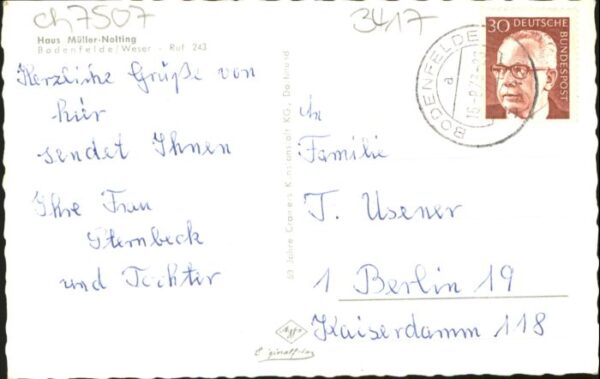 ch7507
3417
Haus Müller-Nolting
Bodenfelde/Weser - Ruf 243
Herzliche Grüße von
hier
sendet Ihnen
Ihre Frau
Sternbeck
und Tochter
30 DEUTSCHE
BUNDESPOST
BODENFELDE
a
69 Jahre Cramers Kunstanstalt KG, Dortmund
An
Familie
T. Usener
1 Berlin 19
Kaiserdamm 118
Agfa
Originalfoto